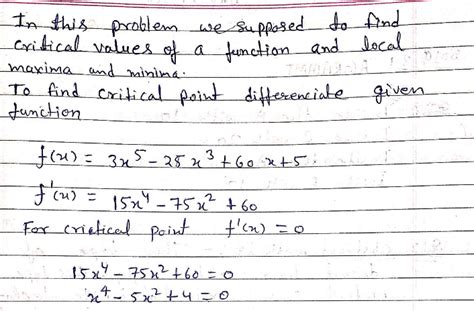 In this problem we supposed to find
critical values of a function and local
maxima and minima.
To find critical point differenciate given
function
f(x) = 3x⁵ - 25x³ + 60x + 5
f'(x) = 15x⁴ - 75x² + 60
For criatical point f'(x) = 0
15x⁴ - 75x² + 60 = 0
x⁴ - 5x² + 4 = 0